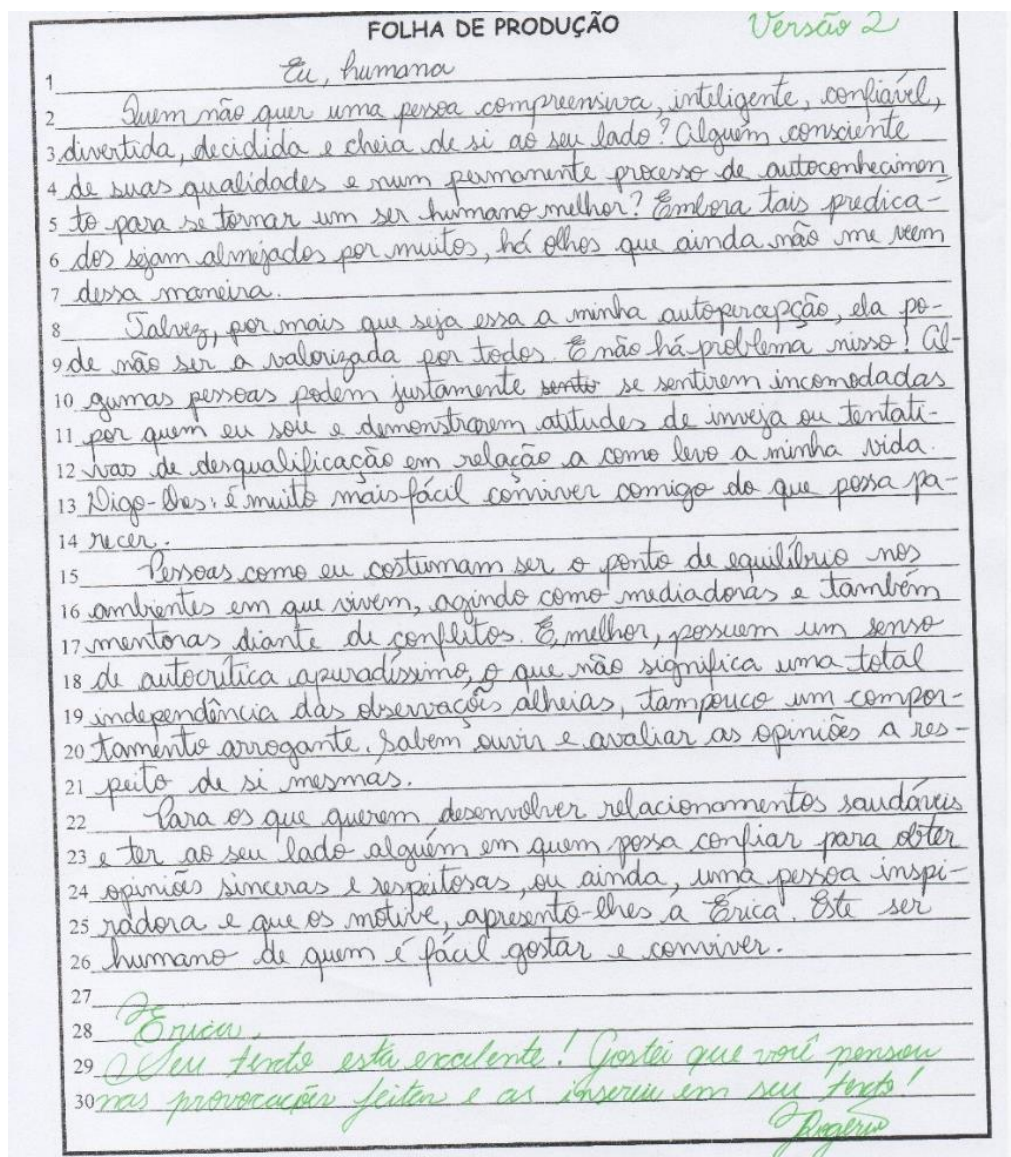 FOLHA DE PRODUÇÃO Versão 2
1 Eu, humana
2 Quem não quer uma pessoa compreensiva, inteligente, confiável,
3 divertida, decidida e cheia de si ao seu lado? Alguém consciente
4 de suas qualidades e num permanente processo de autoconhecimen
5 to para se tornar um ser humano melhor? Embora tais predica-
6 dos sejam almejados por muitos, há olhos que ainda não me veem
7 dessa maneira.
8 Talvez, por mais que seja essa a minha autopercepção, ela po-
9 de não ser a valorizada por todos. E não há problema nisso! Al-
10 gumas pessoas podem justamente sento se sentirem incomodadas
11 por quem eu sou e demonstrarem atitudes de inveja ou tentati-
12 vas de desqualificação em relação a como levo a minha vida.
13 Digo-lhes: é muito mais fácil conviver comigo do que possa pa-
14 recer.
15 Pessoas como eu costumam ser o ponto de equilíbrio nos
16 ambientes em que vivem, agindo como mediadoras e também
17 mentoras diante de conflitos. E, melhor, possuem um senso
18 de autocrítica apuradíssimo, o que não significa uma total
19 independência das observações alheias, tampouco um compor-
20 tamento arrogante. Sabem ouvir e avaliar as opiniões a res-
21 peito de si mesmas.
22 Para os que querem desenvolver relacionamentos saudáveis
23 e ter ao seu lado alguém em quem possa confiar para obter
24 opiniões sinceras e respeitosas, ou ainda, uma pessoa inspi-
25 radora e que os motive, apresento-lhes a Érica. Este ser
26 humano de quem é fácil gostar e conviver.
27
28 Érica,
29 O seu texto está excelente! Gostei que você pensou
30 nas provocações feitas e as inseriu em seu texto!
Rogério